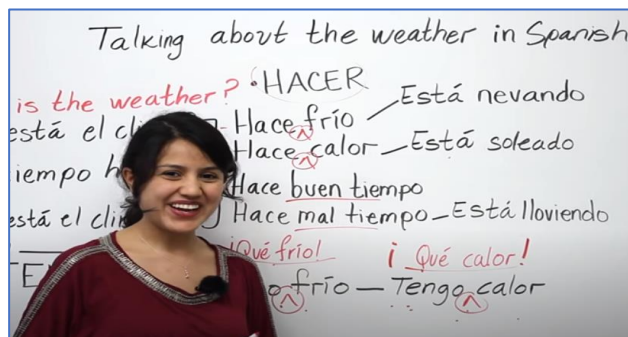 Talking about the weather in Spanish
is the weather? • HACER
está el cli Hace frío Está nevando
Hace calor Está soleado
iempo h Hace buen tiempo
está el cli Hace mal tiempo Está lloviendo
¡Qué frío! ¡Qué calor!
TE o frío — Tengo calor